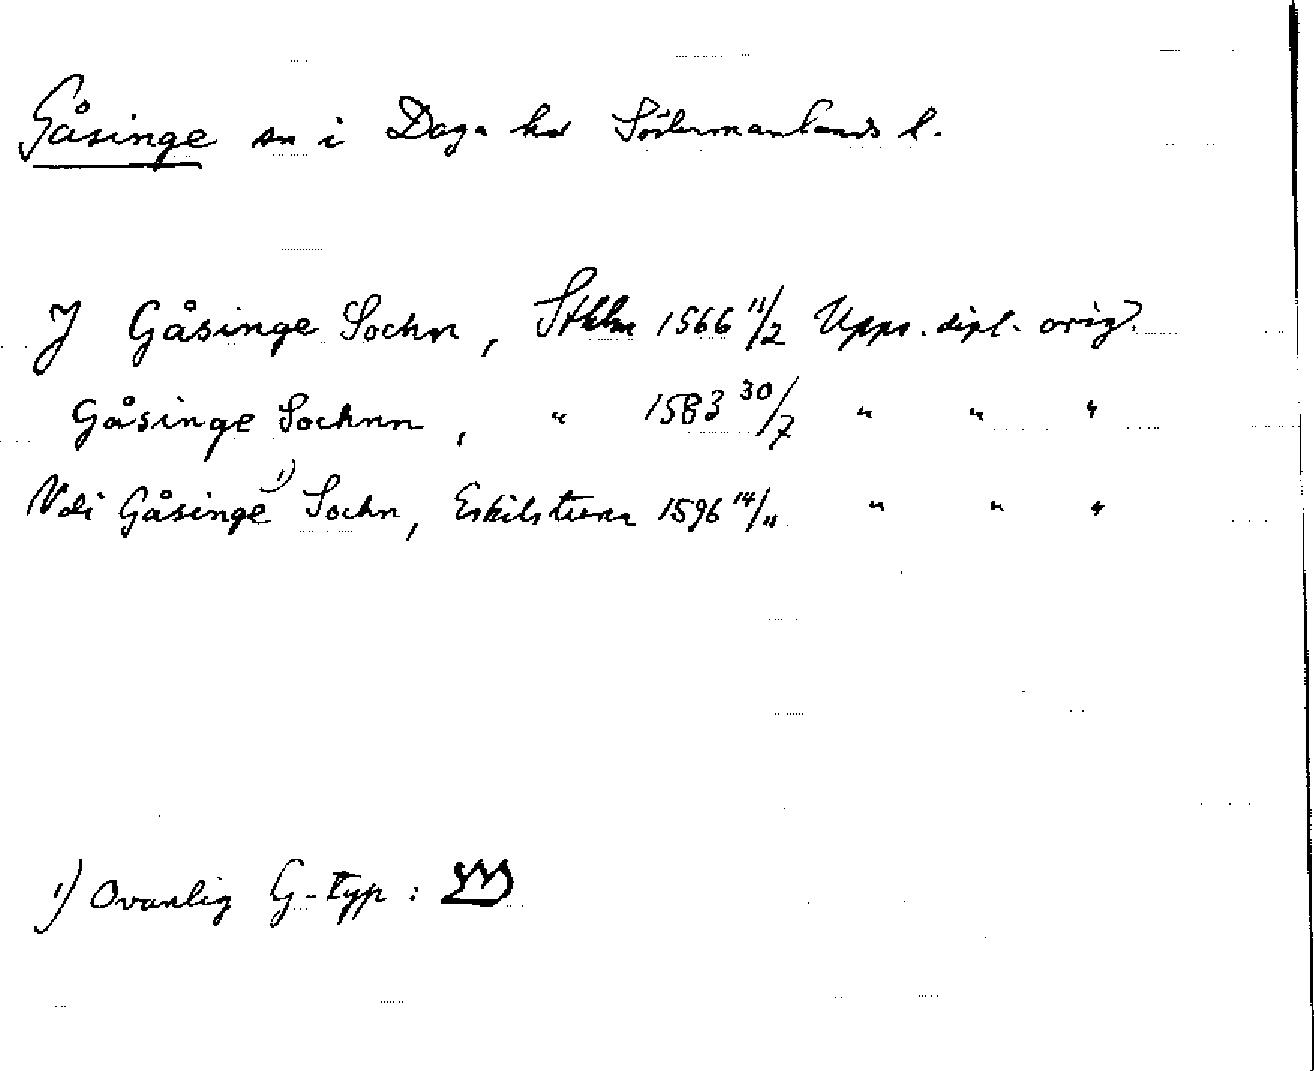 Gåsinge sn i Daga hd Södermanlands l.
J Gåsinge Sochn, Sthlm 1566 11/2 Upps. dipl. orig.
Gåsinge Sochnn, " 1583 30/7 " " "
Vdi Gåsinge 1) Sochn, Eskilstuna 1596 14/11 " " "
1) Ovanlig G-typ: